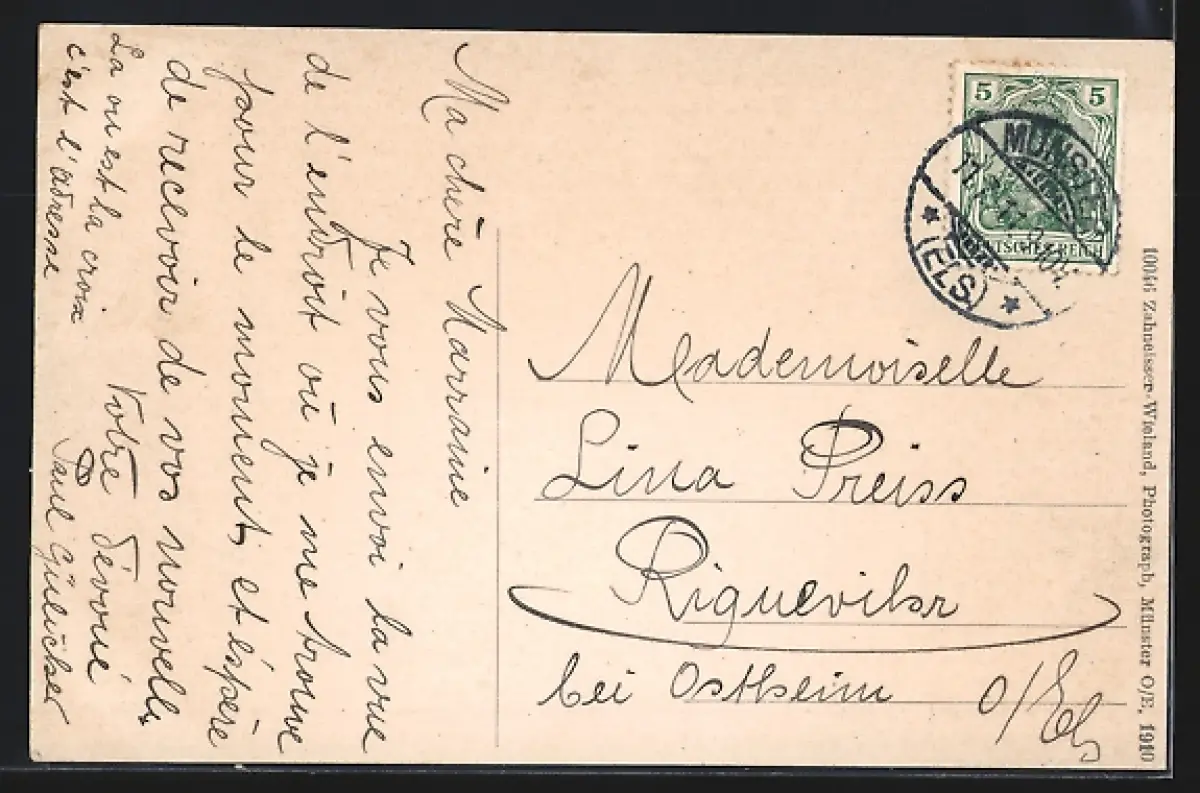 Ma chère Marraine
Je vous envoi la vue
de l'endroit où je me trouve
pour le moment, et éspère
de recevoir de vos nouvelles
Votre dévoué
Paul
La ou est la croix
c'est l'adresse
5 5
DEUTSCHES REICH
MÜNSTER
(ELS)
Mademoiselle
Lina Preiss
bei Ostheim O/Els
10046 Zahneisser-Wieland, Photograph, Münster O/E, 1910